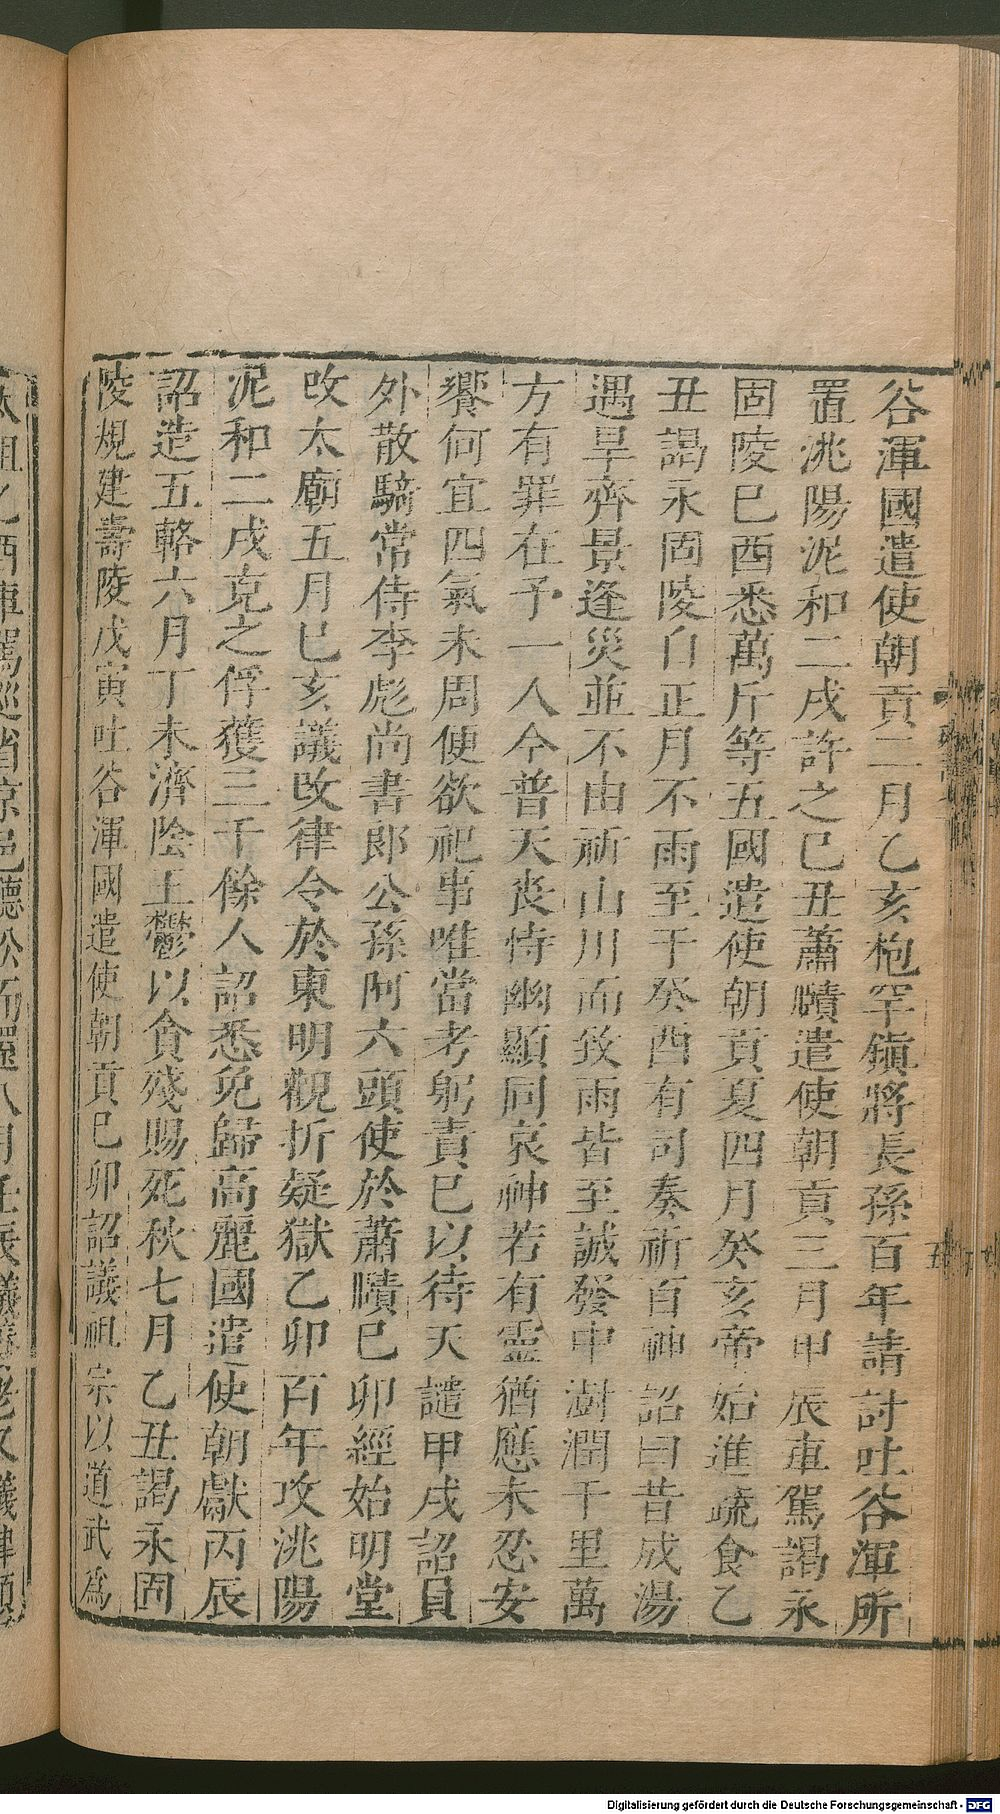 谷渾國遣使朝貢二月乙亥枹罕鎮將長孫百年請討吐谷渾所
置洮陽泥和二戍許之巳丑蕭賾遣使朝貢三月甲辰車駕謁永
固陵巳酉悉萬斤等五國遣使朝貢夏四月癸亥帝始進蔬食乙
丑謁永固陵自正月不雨至于癸酉有司奏祈百神詔曰昔成湯
遇旱齊景逢災並不由祈山川而致雨皆至誠發中澍潤千里萬
方有罪在予一人今普天喪恃幽顯同哀神若有靈猶應未忍安
饗何宜四氣未周便欲祀事唯當考躬責巳以待天譴甲戌詔員
外散騎常侍李彪尚書郎公孫阿六頭使於蕭賾巳卯經始明堂
改太廟五月巳亥議改律令於東明觀折疑獄乙卯百年攻洮陽
泥和二戍克之俘獲三千餘人詔悉免歸高麗國遣使朝獻丙辰
詔造五輅六月丁未濟陰王鬱以貪殘賜死秋七月乙丑謁永固
陵規建壽陵戊寅吐谷渾國遣使朝貢巳卯詔議祖宗以道武爲
乙酉車駕巡省京邑聽訟而還八月壬辰議養老又議律
Digitalisierung gefördert durch die Deutsche Forschungsgemeinschaft - DFG